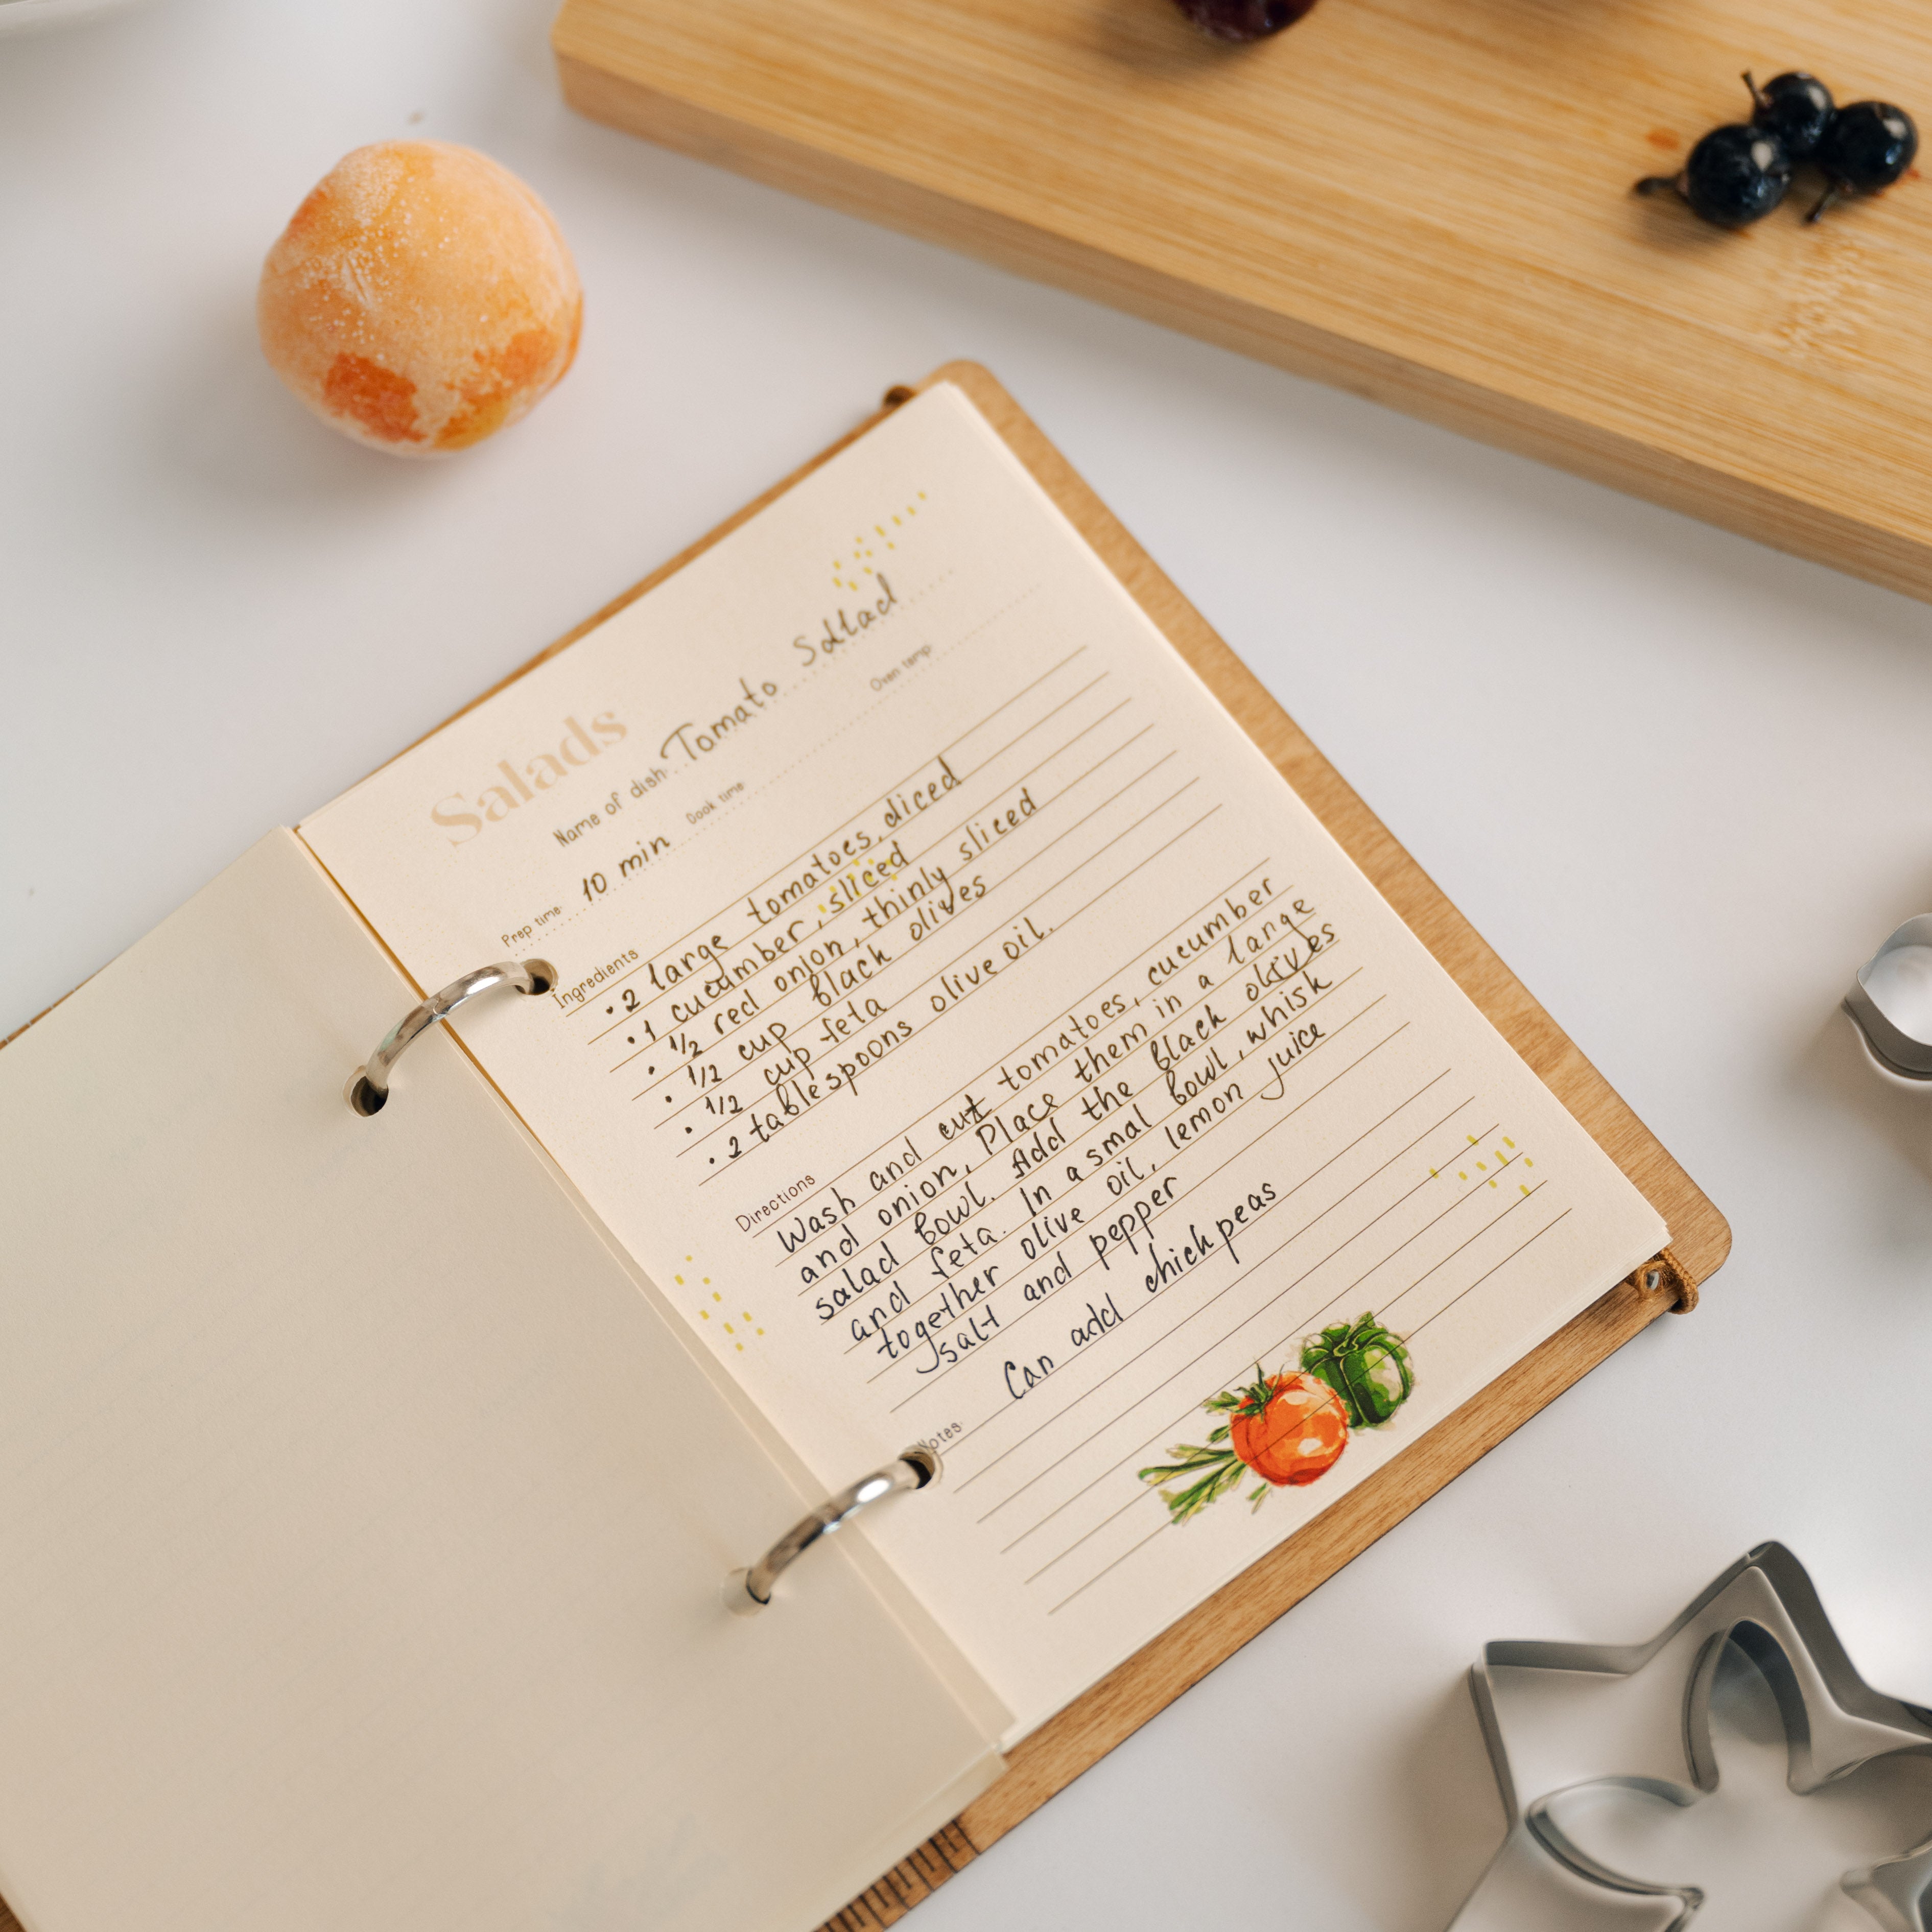 Salads
Name of dish: Tomato Sallad
Prep time: 10 min Cook time: Oven temp:
Ingredients
• 2 large tomatoes, diced
• 1 cucumber, sliced
• 1/2 red onion, thinly sliced
• 1/2 cup black olives
• 1/2 cup feta
• 2 tablespoons olive oil.
Directions
Wash and cut tomatoes, cucumber
and onion, Place them in a large
salad bowl. Add the black olives
and feta. In a smal bowl, whisk
together olive oil, lemon juice
salt and pepper
Can add chickpeas
Notes: